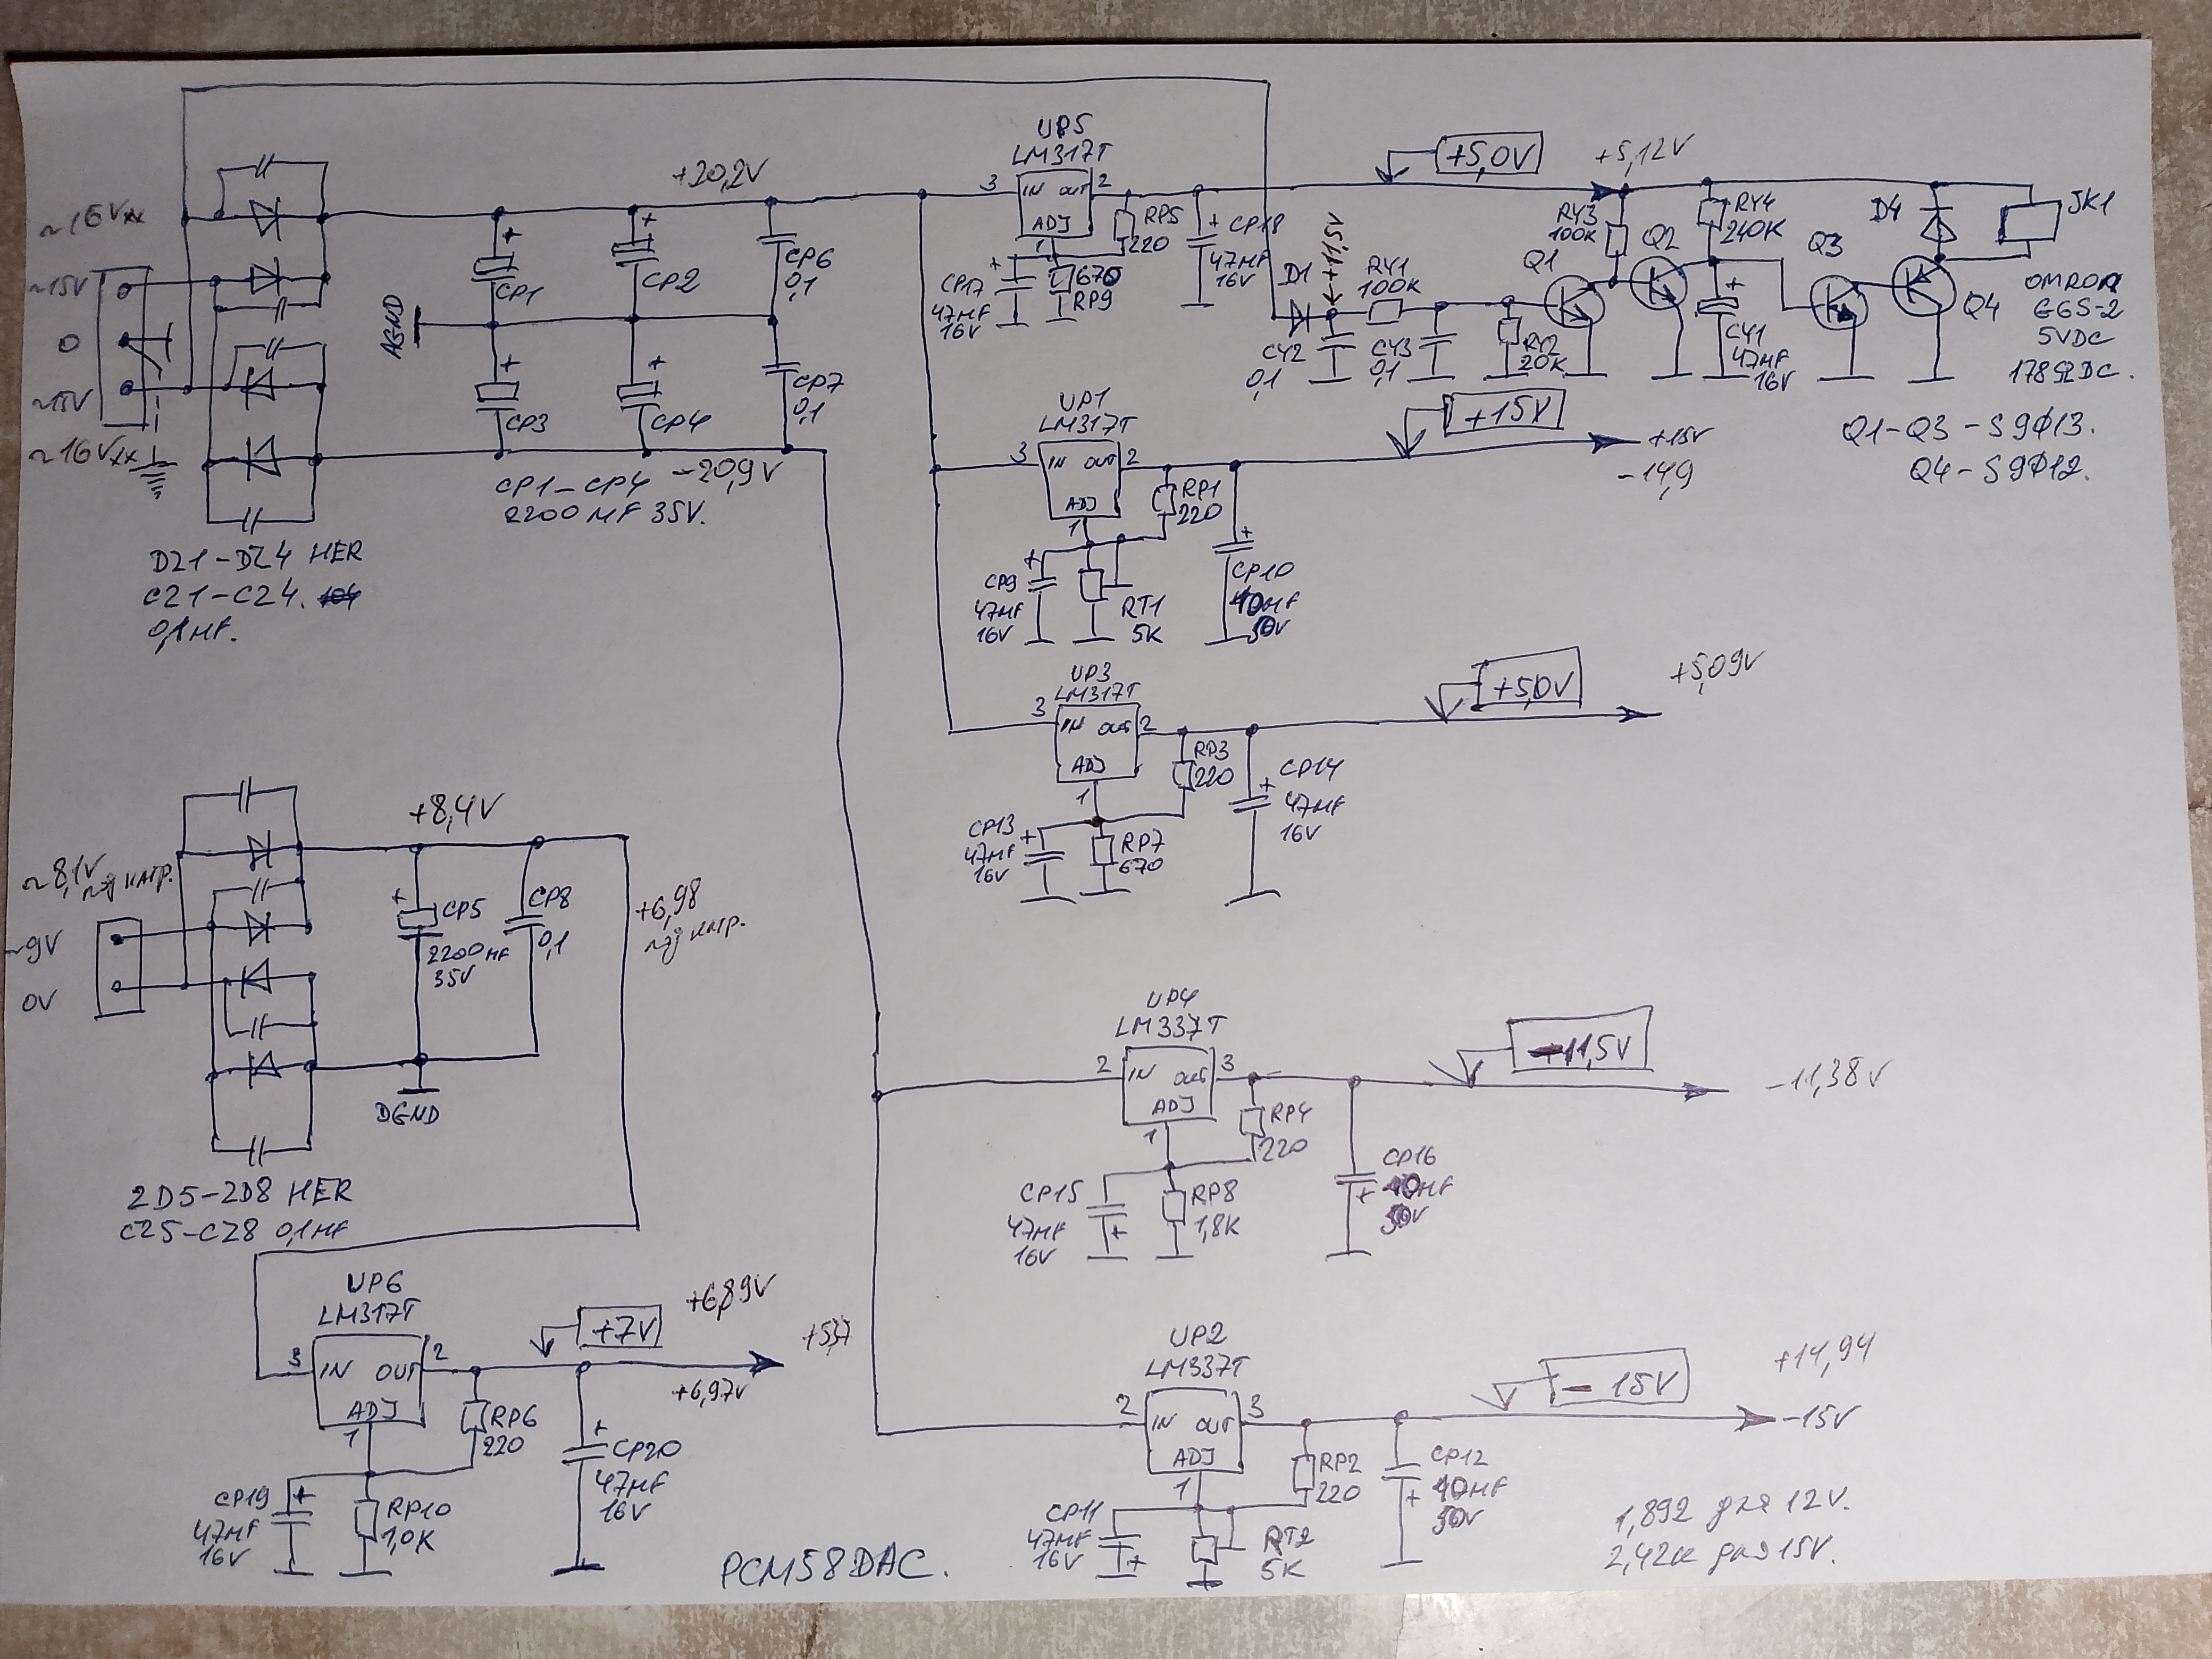 ~16Vxx
~15V
0
~15V
~16Vxx
DZ1-DZ4 HER
CZ1-CZ4.
0,1MF.
AGND
+20,2V
+
CP1
+
CP2
CP6
0,1
+
CP3
+
CP4
CP7
0,1
-20,9V
CP1-CP4
2200MF 35V.
UP5
LM317T
3 IN OUT 2
ADJ
1
RP5
220
+ CP18
47MF
16V
CP17 +
47MF
16V
670
RP9
+5,0V
+5,12V
D1
+11,5V
RY1
100K
CY2
0,1
CY3
0,1
RY2
20K
RY3
100K
Q1
Q2
RY4
240K
+
CY1
47MF
16V
Q3
D4
Q4
JK1
OMRON
G6S-2
5VDC
178ΩDC.
Q1-Q3-S9Ø13.
Q4-S9Ø12.
UP1
LM317T
3 IN OUT 2
ADJ
1
RP1
220
+
CP10
CP9 +
47MF
16V
RT1
5K
+15V
+15V
-14,9
UP3
LM317T
3 IN OUT 2
ADJ
1
RP3
220
CP14
+ 47MF
16V
CP13 +
47MF
16V
RP7
670
+5,0V
+5,09V
~8,1V
под нагр.
~9V
0V
+8,4V
+
CP5
2200MF
35V
CP8
0,1
DGND
+6,98
под нагр.
2D5-2D8 HER
CZ5-CZ8 0,1MF
UP4
LM337T
2 IN OUT 3
ADJ
1
RP4
220
CP16
+
CP15
47MF
16V
+
RP8
1,8K
-11,5V
-11,38V
UP6
LM317T
3 IN OUT 2
ADJ
1
RP6
220
+
CP20
47MF
16V
CP19 +
47MF
16V
RP10
1,0K
+7V
+6,89V
+6,97V
UP2
LM337T
2 IN OUT 3
ADJ
1
RP2
220
CP12
+
CP11
47MF
16V
+
RT2
5K
- 15V
+14,94
-15V
1,892 для 12V.
2,42к для 15V.
PCM58DAC.